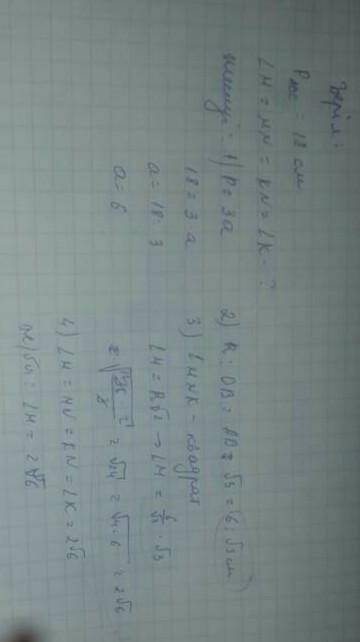 Берілген:
P авс = 18 см
LM = MN = KN = LK - ?
Шешуі: 1) P = 3a
18 = 3a
a = 18 : 3
a = 6
2) R = OB = AB : √3 = (6 : √3 см)
3) LMNK - квадрат
LM = R√2 → LM = 6/√3 · √2
= √24 = √4·6 = 2√6
4) LM = MN = KN = LK = 2√6
LM = 2√6